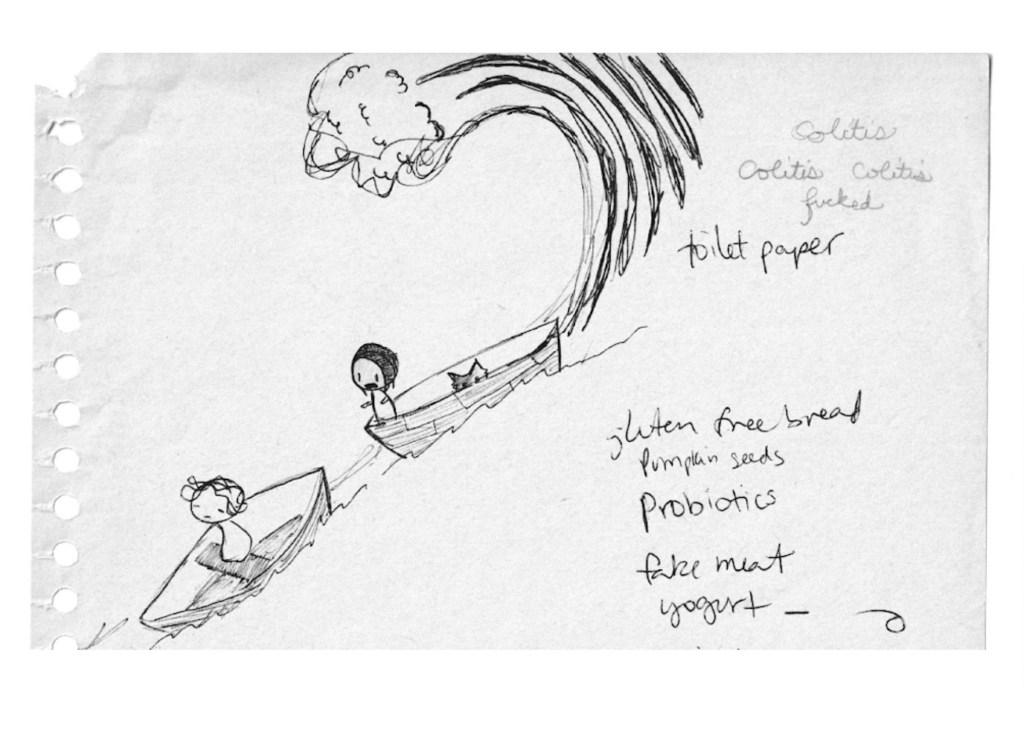 Colitis
Colitis Colitis
fucked
toilet paper
gluten free bread
Pumpkin seeds
Probiotics
fake meat
yogurt –